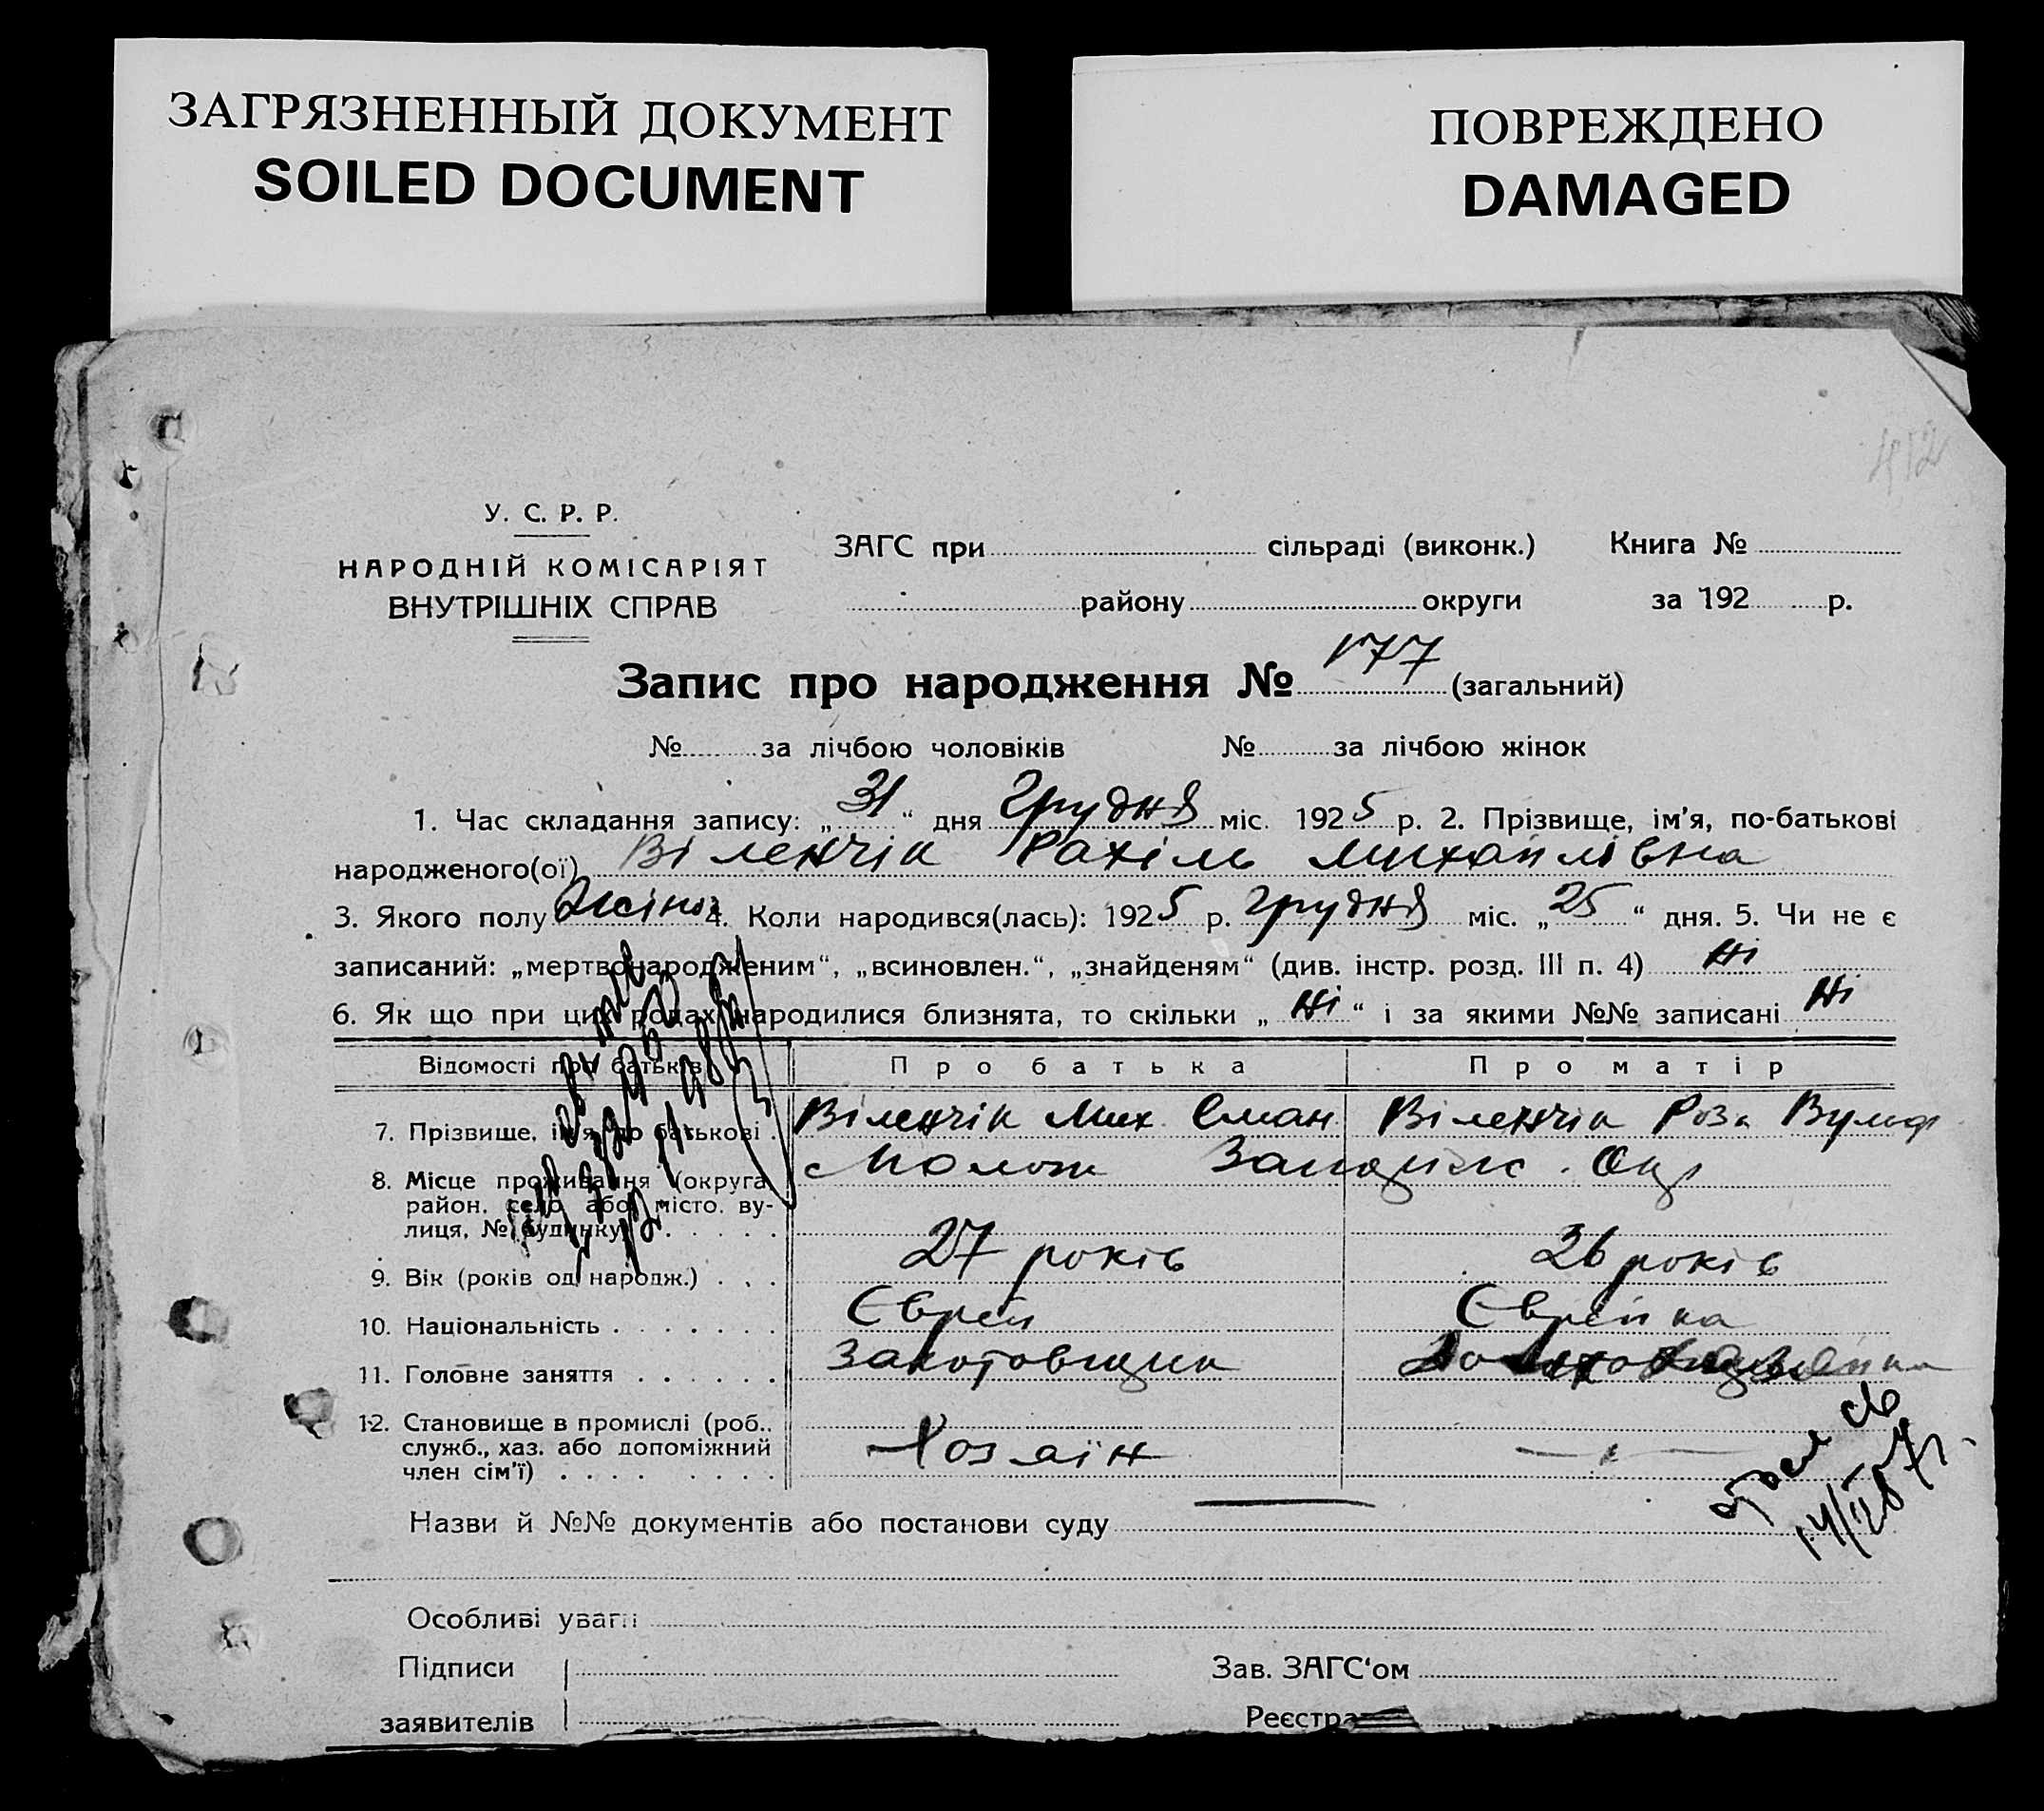 ЗАГРЯЗНЕННЫЙ ДОКУМЕНТ
SOILED DOCUMENT
ПОВРЕЖДЕНО
DAMAGED
412
У. С. Р. Р.
НАРОДНІЙ КОМІСАРІЯТ
ВНУТРІШНІХ СПРАВ
ЗАГС при сільраді (виконк.) Книга №
району округи за 192 р.
Запис про народження № 177 (загальний)
№ за лічбою чоловіків № за лічбою жінок
1. Час складання запису: „31“ дня Грудня міс. 1925 р. 2. Прізвище, ім'я, по-батькові
народженого(ої) Віленчік Рахіль Михайлівна
3. Якого полу Жіноч 4. Коли народився(лась): 1925 р. Грудня міс. „25“ дня. 5. Чи не є
записаний: „мертвонародженим“, „всиновлен.“, „знайденям“ (див. інстр. розд. III п. 4) Ні
6. Як що при цих родах народилися близнята, то скільки „Ні“ і за якими №№ записані Ні
Відомості про батьків Про батька Про матір
7. Прізвище, ім'я, по батькові Віленчік Мих Віленчік Роза Вульф
8. Місце проживання (округа
район, село або місто, ву-
лиця, № будинку)
9. Вік (років од народж.) 27 років 26 років
10. Національність Єврей Єврейка
11. Головне заняття Заготовщик
12. Становище в промислі (роб.,
служб., хаз. або допоміжний
член сім'ї) Хозяїн
Назви й №№ документів або постанови суду
Особливі уваги
Підписи Зав. ЗАГС‘ом
заявителів Реєстра